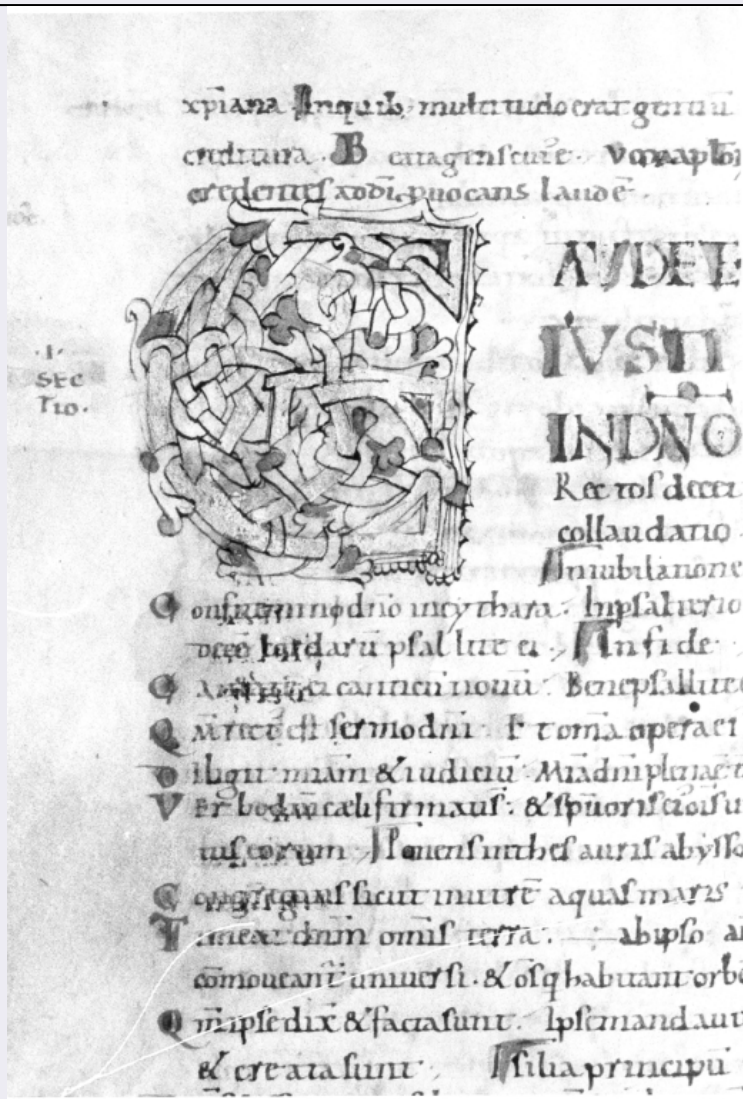 xp̄iana In quib; multitudo erat gentiū
creditura. Beata gens cui᷒ē. Vox ap̄lōꝝ
credentes ad dī puocans laudē.
GAUDETE
IVSTI
.I.
SEC
TIO.
IN DN̄O
Rectos decet
collaudatio
In iubilatione
Confitemini dn̄o in cythara. In psalterio
decē cordarū psallite ei. In fide
Cantate ei canticū novū. Bene psallite
Qm̄ rectū est sermo dn̄i Et om̄a opera ei
Diligit m̄iam & iudiciū. M̄ia dn̄i plena est
Verbo dn̄i cæli firmati s̄. & spū oris
tus eorum. Ponens in thesauris abysso
Congregans sicut in utrē aquas maris
Timeat dnm̄ omīs terra. ab ipso
cōmoueant᷒ universi. & om̄sq habitant orbē
Qm̄ ipse dix̄ & facta sunt. Ipse mandauit
& creata sunt. silia principū